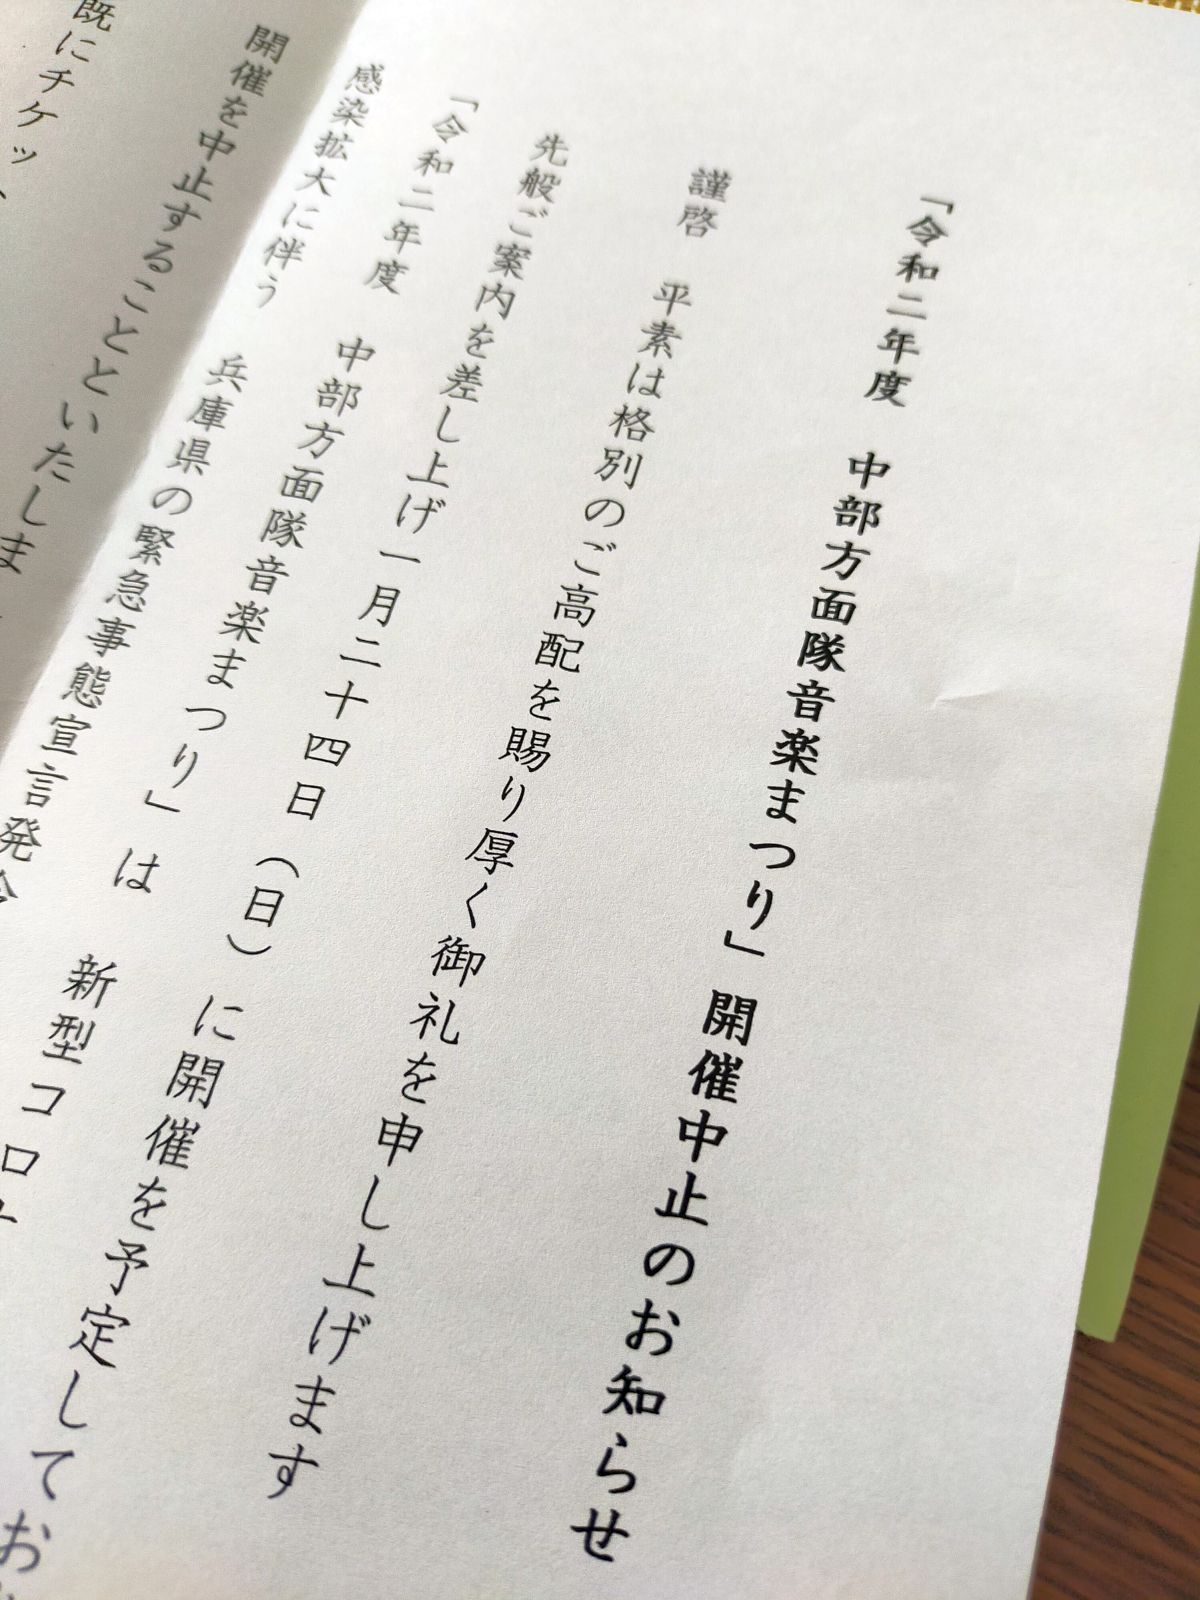 「令和二年度　中部方面隊音楽まつり」開催中止のお知らせ
謹啓　平素は格別のご高配を賜り厚く御礼を申し上げます
先般ご案内を差し上げ一月二十四日（日）に開催を予定してお
「令和二年度　中部方面隊音楽まつり」は　新型コロナ
感染拡大に伴う　兵庫県の緊急事態宣言発令
開催を中止することといたしま
既にチケット